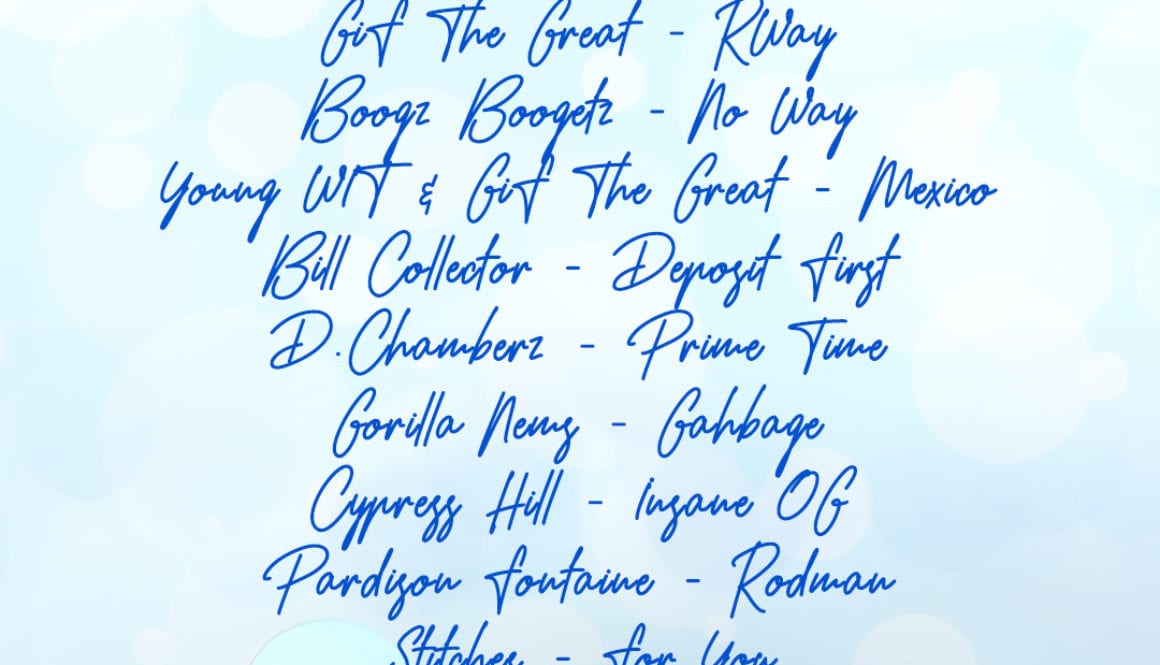 Gif The Great - RWay
Boogz Boogetz - No Way
Young WIT & Gif The Great - Mexico
Bill Collector - Deposit First
D.Chamberz - Prime Time
Gorilla Nems - Gahbage
Cypress Hill - Insane OG
Pardison Fontaine - Rodman
Stitches - For You